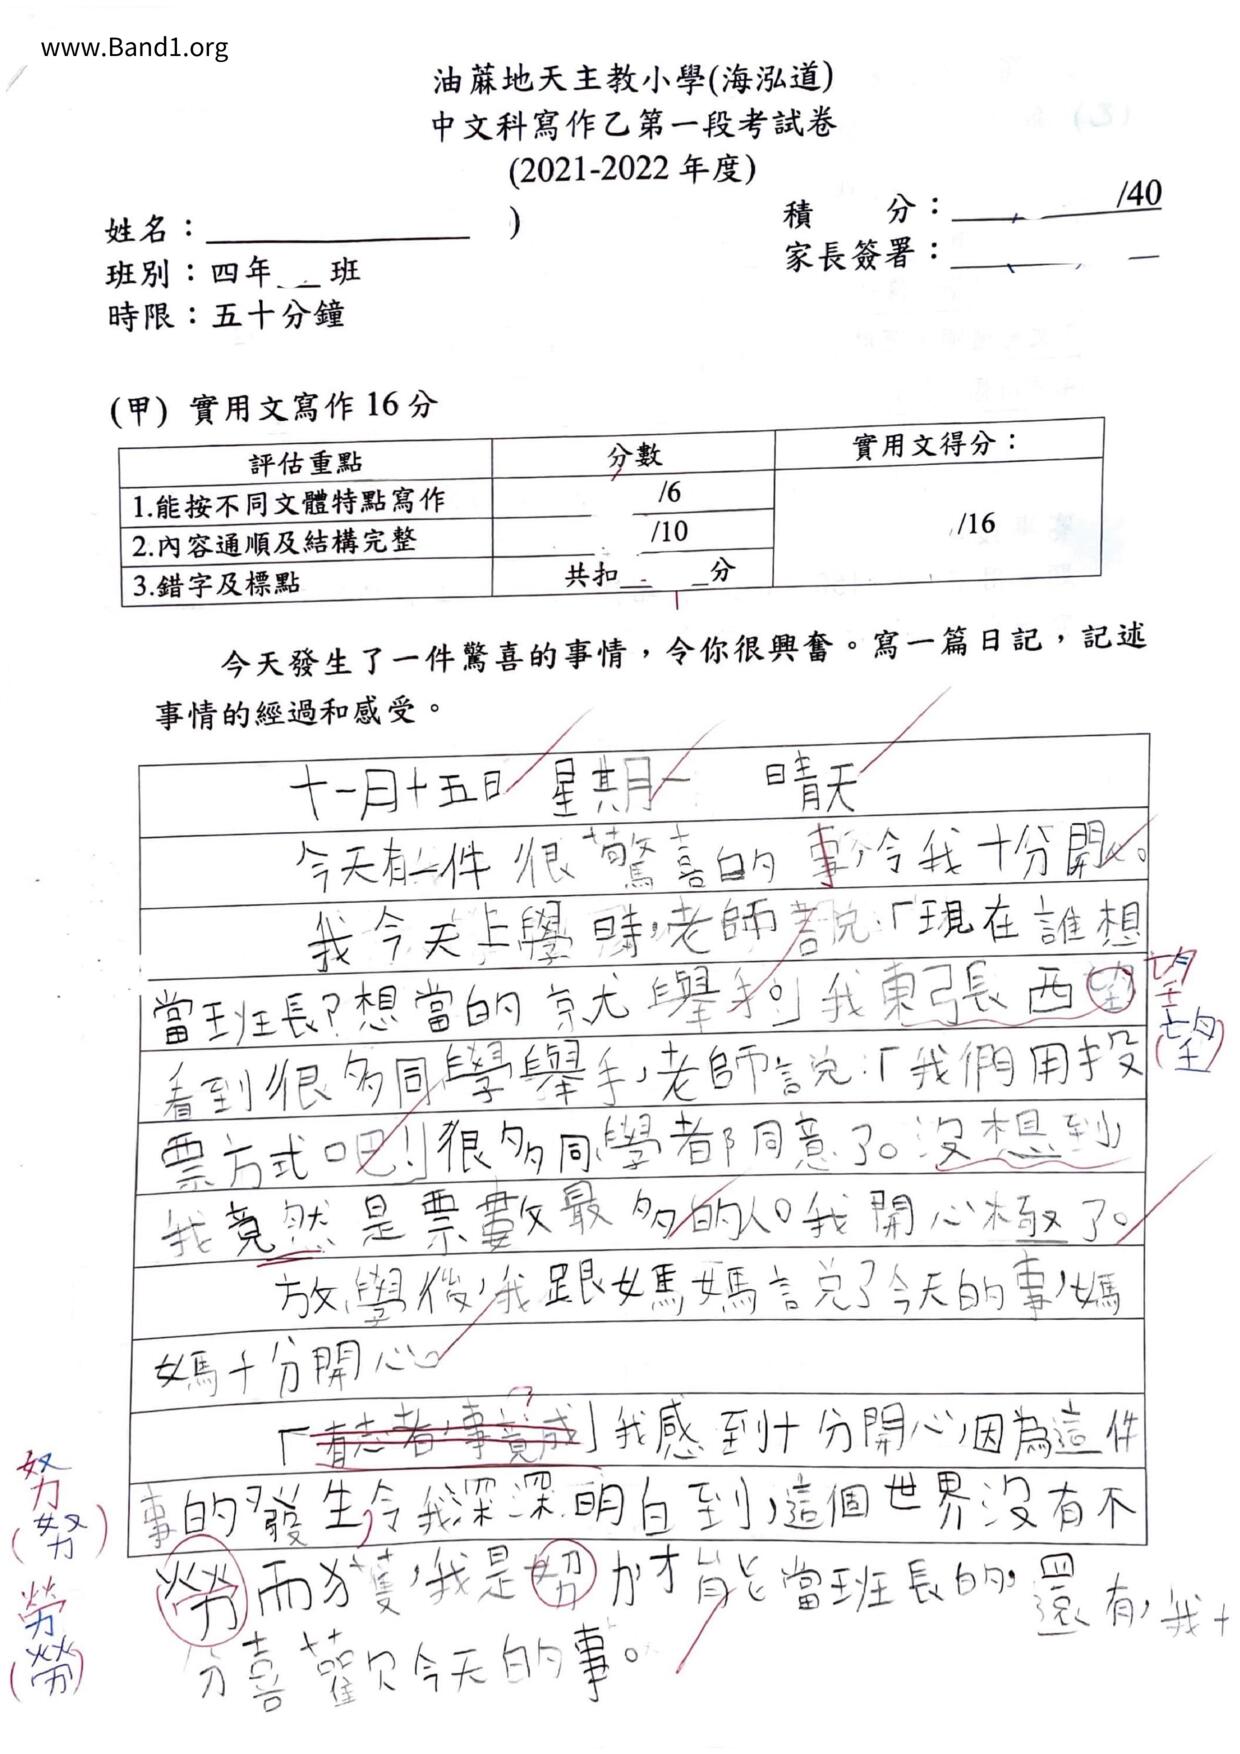 www.Band1.org
油蔴地天主教小學(海泓道)
中文科寫作乙第一段考試卷
(2021-2022 年度)
姓名：__________ )
積 分：__________/40
班別：四年___班
家長簽署：__________
時限：五十分鐘
(甲) 實用文寫作 16 分
評估重點 分數 實用文得分：
1.能按不同文體特點寫作 /6
2.內容通順及結構完整 /10 /16
3.錯字及標點 共扣____分
今天發生了一件驚喜的事情，令你很興奮。寫一篇日記，記述
事情的經過和感受。
十一月十五日 星期一 晴天
今天有一件很驚喜的事令我十分開心。
我今天上學時，老師說：「現在誰想
當班長？想當的就舉手。」我東張西望
望
(望)
看到很多同學舉手，老師說：「我們用投
票方式吧！」很多同學都同意了。沒想到
我竟然是票數最多的人。我開心極了。
放學後，我跟媽媽說了今天的事，媽
媽十分開心。
「有志者，事竟成」我感到十分開心，因為這件
事的發生，令我深深明白到，這個世界沒有不
努
(努)
勞而獲，我是努力才能當班長的，還有，我十
勞
(勞)
分喜歡今天的事。